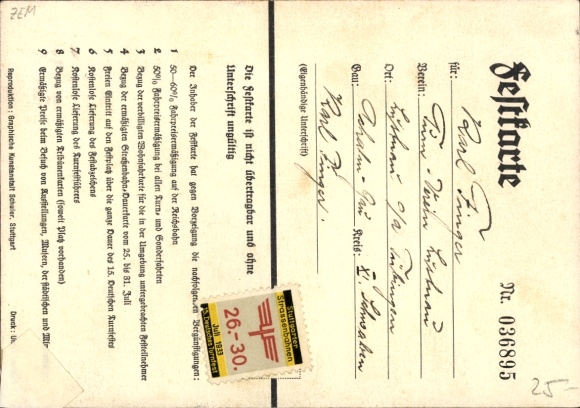 Festkarte
Nr. 036895
für: Karl Finger
Verein: Turn-Verein Lustnau
Ort: Lustnau o/a Tübingen
Gau: Kreis: X. Schwaben
Karl Finger.
(Eigenhändige Unterschrift)
Die Festkarte ist nicht übertragbar und ohne
Unterschrift ungültig
Der Inhaber der Festkarte hat gegen Vorzeigung die nachfolgenden Vergünstigungen:
1 50—60% Fahrpreisermäßigung auf der Reichsbahn
2 50% Fahrpreisermäßigung bei allen Turn- und Sonderfahrten
3 Bezug der verbilligten Wohnfahrkarte für die in der Umgebung untergebrachten Festteilnehmer
4 Bezug der ermäßigten Straßenbahn-Dauerkarte vom 25. bis 31. Juli
5 Freien Eintritt auf den Festplatz über die ganze Dauer des 15. Deutschen Turnfestes
6 Kostenlose Lieferung des Festabzeichens
7 Kostenlose Lieferung des Turnfestführers
8 Bezug von ermäßigten Tribünenkarten (soweit Platz vorhanden)
9 Ermäßigte Preise beim Besuch von Ausstellungen, Museen, der städtischen und
Reproduktion: Graphische Kunstanstalt Schuler, Stuttgart
Druck:
Stuttgarter
Strassenbahnen
26.-30.
Juli 1933
15. Deutsches Turnfest
ZEM
25-